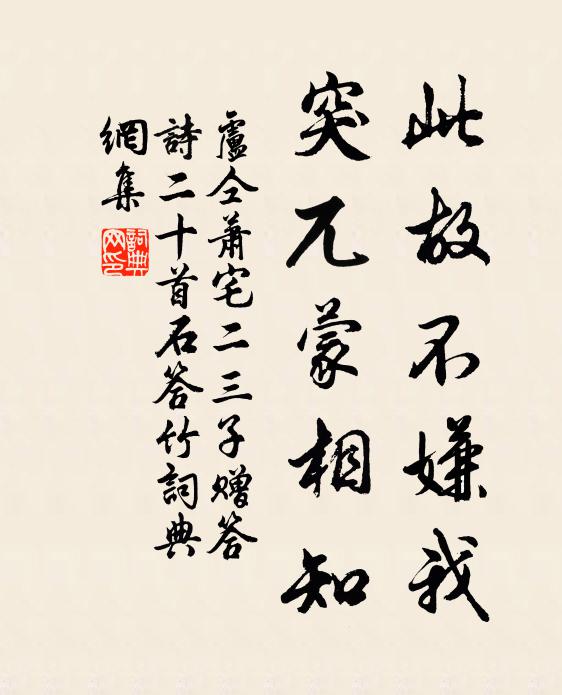 此故不嫌我
突兀蒙相知
盧仝蕭宅二三子赠答
詩二十首石答竹詞典
網集
詞典
网印